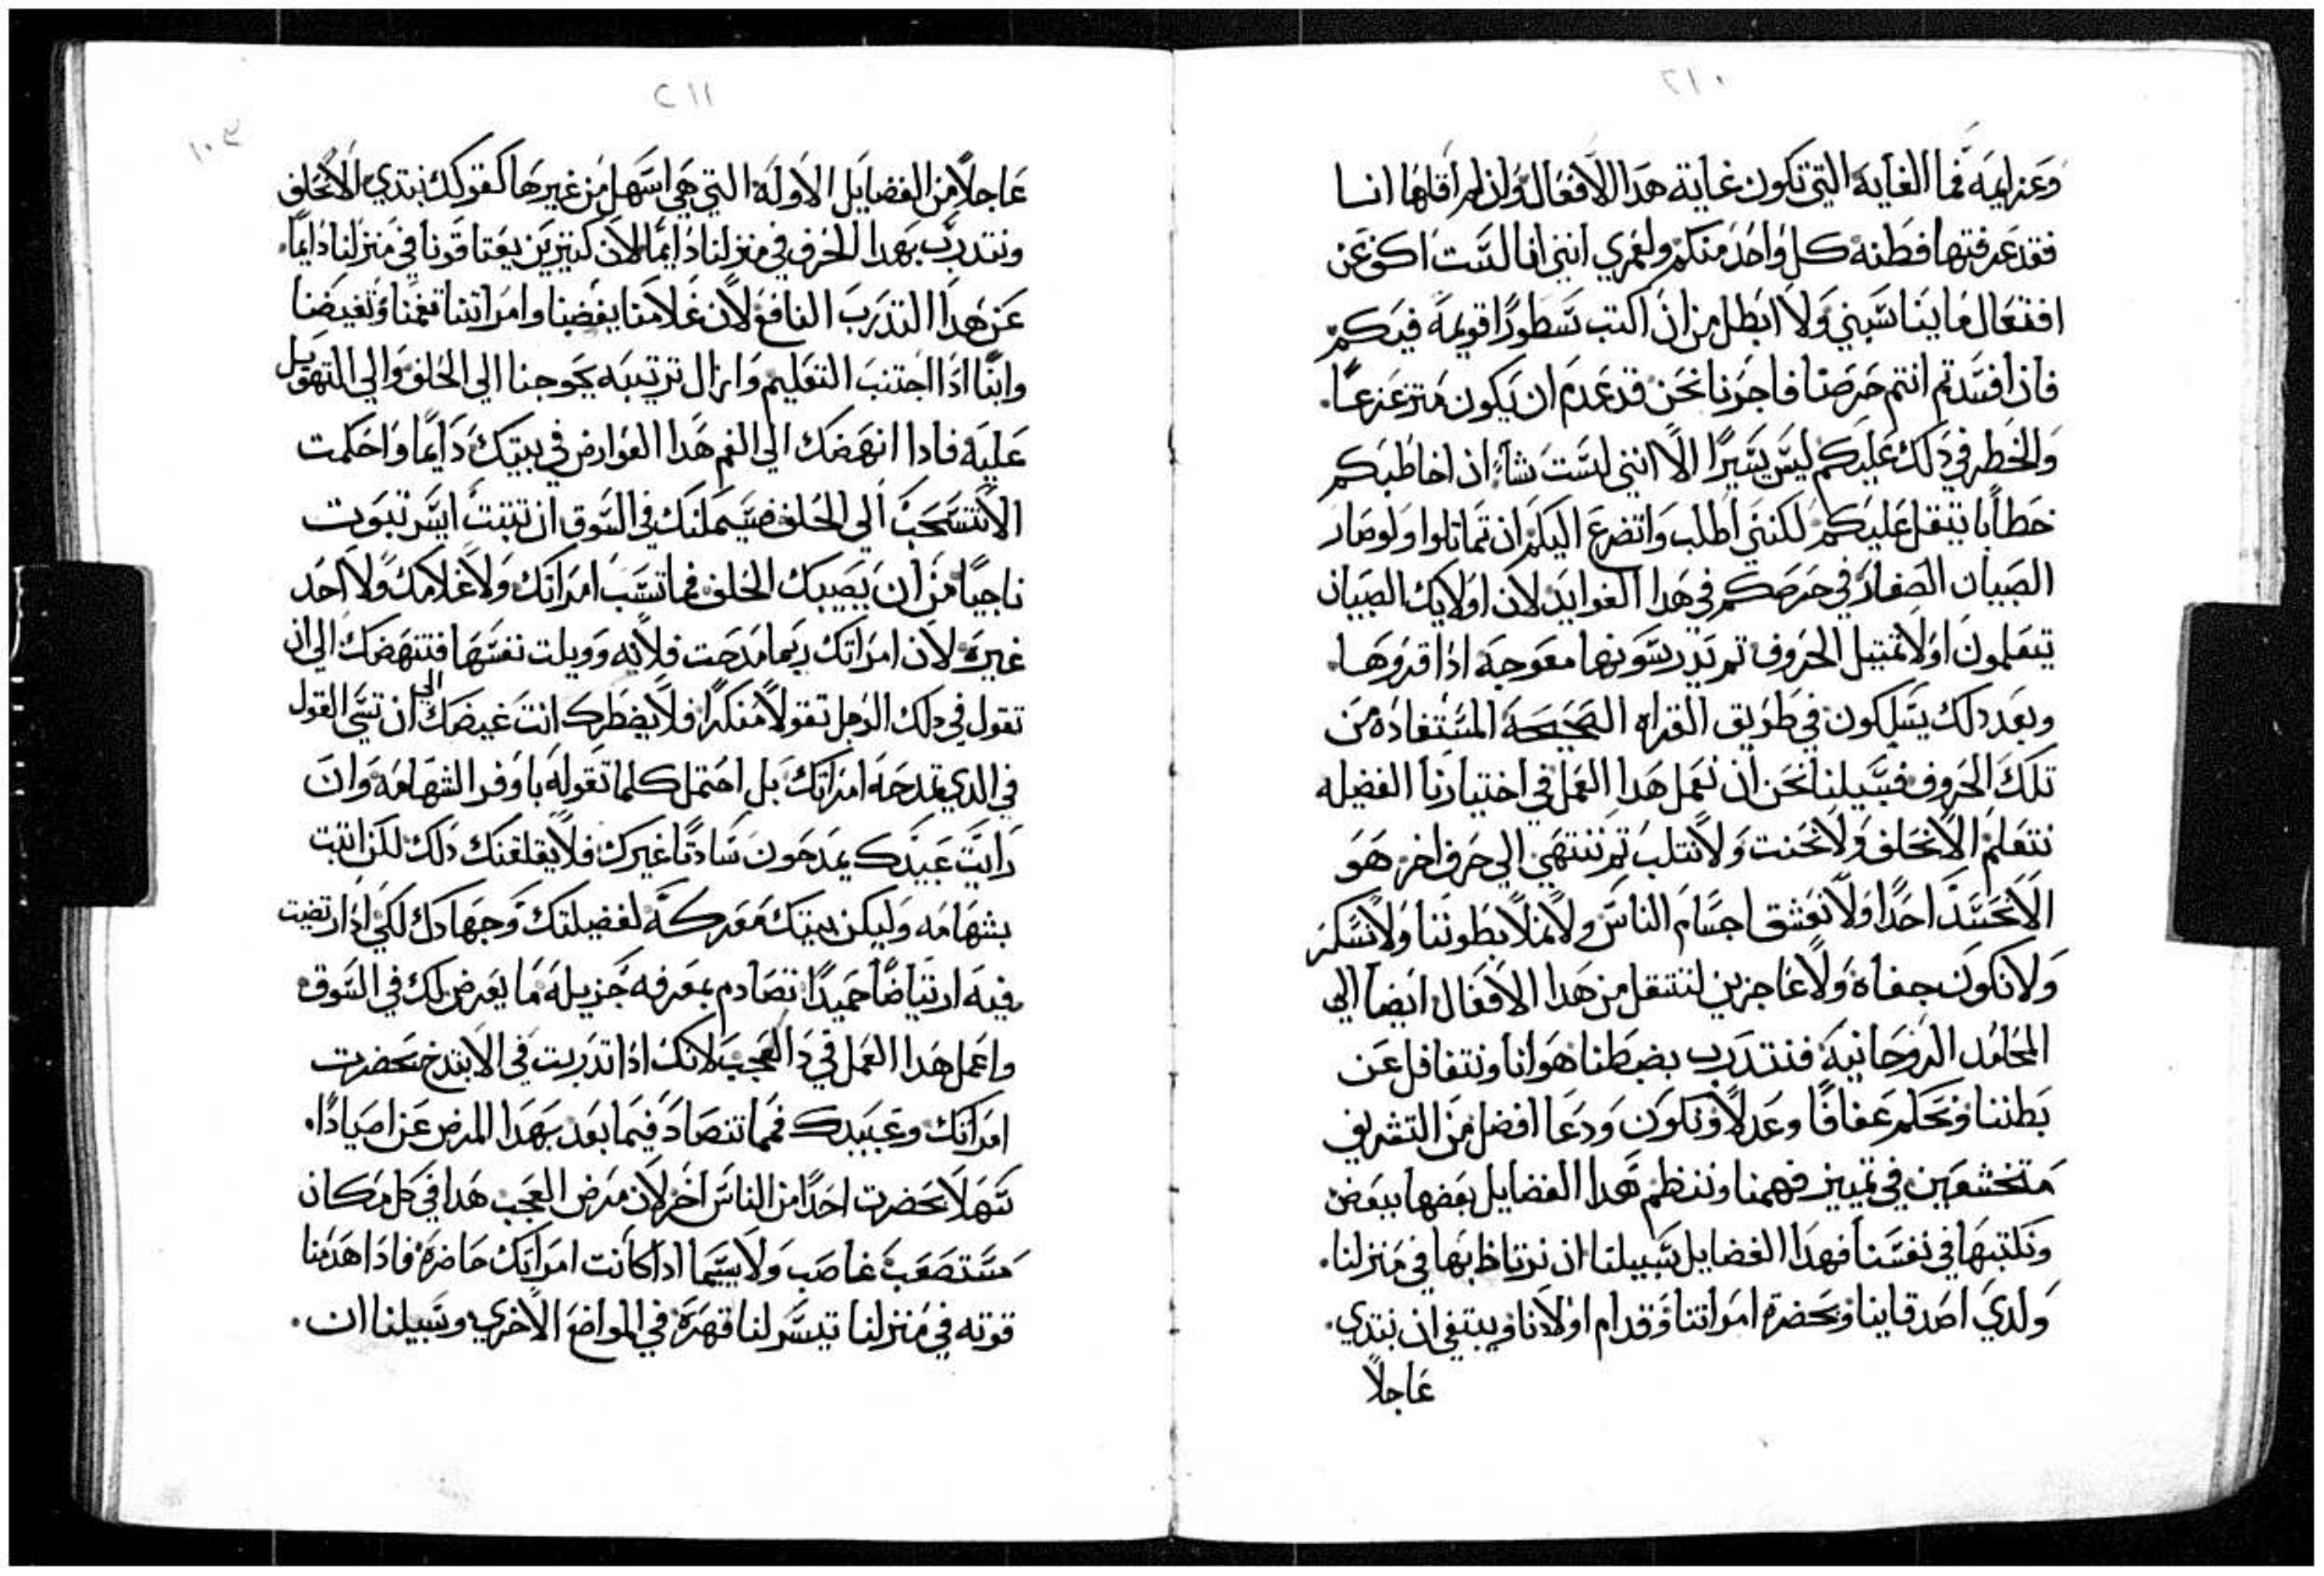 ٢١٠
وعزايمه فما الغايه التي تكون غاية هدا الافعاله وان لم اقلها انسا
فقد عرفتها فطنة كل واحد منكم ولعمري انني انا لست اكع عن
افتعال ما يناسبني ولا ابطل من ان اكتب سطورًا قويمة فيكم
فان افسدتم انتم حرصنا فاجرنا نحن قد عدم ان يكون متزعزعًا.
والخطر في دلك عليكم ليس يسيرًا الا انني لست نشاء ان اخاطبكم
خطابا يثقل عليكم لكنني اطلب واتضرع اليكم ان تماثلوا ولو صار
الصبيان الصغار في حرصكم في هدا الفوايد لان اولايك الصبيان
يتعلمون اولا تمثيل الحروف تم يدرسونها معوجة ادا قروها.
وبعد دلك يسلكون في طريق القراه الصحيحة المستفاده من
تلك الحروف فسبيلنا نحن ان نعمل هدا العمل في اختيارنا الفضيله
نتعلم الا نحلف ولا نحنت ولا نتلب تم ننتهي الي حرف اخر هو
الا نحسد احدًا ولا نعشق اجسام الناس ولا نملا بطوننا ولا نسكر
ولا نكون جفاة ولا عاجزين لننتقل من هدا الافعال ايضا الي
المحامد الروحانية فنتدرب بضبطنا هوانا ونتغافل عن
بطننا ونحكم عفافًا وعدلًا ونكون ودعا افضل من التشريف
متخشعين في تمييز فهمنا وننظم هدا الفضايل بعضها ببعض
ونكتبها في نفسنا فهدا الفضايل سبيلنا ان نرتاظ بها في منزلنا.
ولدي اصدقاينا وبحضرة امراتنا وقدام اولادنا وينبغي ان نبتدي.
عاجلًا
٢١١
١٠٤
عاجلًا من الفضايل الاوله التي هي اسهل من غيرها كقولك نبتدي الا نحلف
ونتدرب بهدا الحرف في منزلنا دايما لان كثيرين يعتاقونا في منزلنا دايمًا.
عن هدا التدرب النافع لان غلامنا يغضبنا وامراتنا تغمنا وتغيضنا
وابنا ادا اجتنب التعليم وازال ترتيبه يحوجنا الي الحلف والي التهويل
عليه فادا انهضك الي الغم هدا العوارض في بيتك دايمًا واحكمت
الا تنسحب الي الحلف فسيمكنك في السوق ان تتبت ايسر تبوت
ناجيًا من ان يصيبك الحلف فما تسب امراتك ولا غلامك ولا احد
غيره لان امراتك ربما مدحت فلانه وويلت نفسها فتنهضك الي ان
تقول في دلك الرجل تقولًا منكرًا فلا يضطرك انت غيضك الي ان تسي القول
في الدي تمدحه امراتك بل احتمل كلما تقوله باوفر الشهامة وان
رايت عبيدك يمدحون سادتًا غيرك فلا يقلقنك دلك لكن اتبت
بشهامه وليكن بيتك معركة لفضيلتك وجهادك لكي ادا ارتضيت
فيه ارتياضًا حميدًا تصادم بمعرفه جزيلة ما يعرض لك في السوق
واعمل هدا العمل في دا العجب لانك ادا تدربت في الا تبتدخ بحضرت
امراتك وعبيدك فما تنصاد فيما بعد بهدا المرض عن اصيادًا.
سهلا بحضرت احدًا من الناس اخر لان مرض العجب هدا في كل مكان
مستصعب غاصب ولا سيما ادا كانت امراتك حاضرة فادا هدمنا
قوته في منزلنا تيسر لنا قهره في المواضع الاخري وسبيلنا ان.